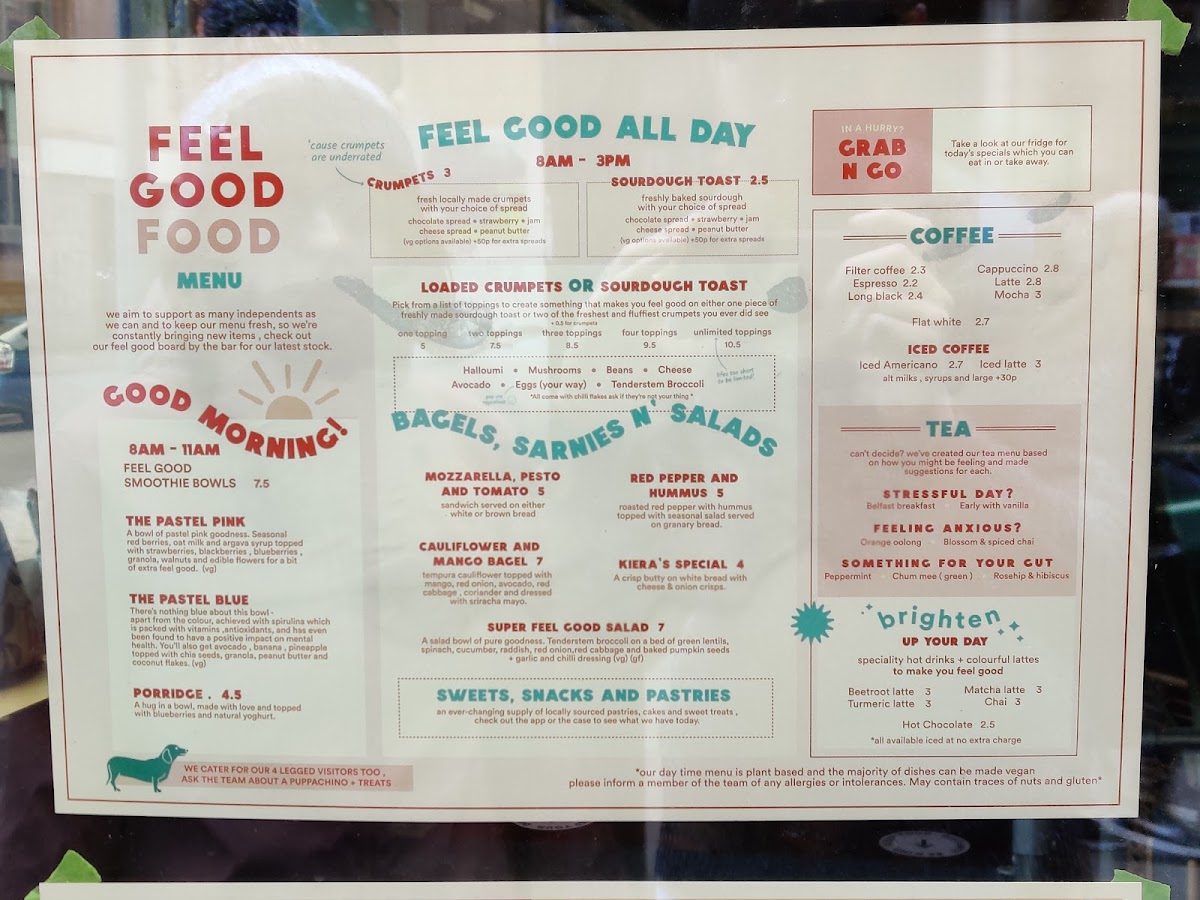 FEEL
GOOD
FOOD
MENU
we aim to support as many independents as
we can and to keep our menu fresh, so we're
constantly bringing new items , check out
our feel good board by the bar for our latest stock.
GOOD MORNING!
8AM - 11AM
FEEL GOOD
SMOOTHIE BOWLS 7.5
THE PASTEL PINK
A bowl of pastel pink goodness. Seasonal
red berries, oat milk and argava syrup topped
with strawberries, blackberries , blueberries ,
granola, walnuts and edible flowers for a bit
of extra feel good. (vg)
THE PASTEL BLUE
There's nothing blue about this bowl -
apart from the colour, achieved with spirulina which
is packed with vitamins ,antioxidants, and has even
been found to have a positive impact on mental
health. You'll also get avocado , banana , pineapple
topped with chia seeds, granola, peanut butter and
coconut flakes. (vg)
PORRIDGE . 4.5
A hug in a bowl, made with love and topped
with blueberries and natural yoghurt.
WE CATER FOR OUR 4 LEGGED VISITORS TOO ,
ASK THE TEAM ABOUT A PUPPACHINO + TREATS
FEEL GOOD ALL DAY
8AM - 3PM
'cause crumpets
are underrated
CRUMPETS 3
fresh locally made crumpets
with your choice of spread
chocolate spread • strawberry • jam
cheese spread • peanut butter
(vg options available) +50p for extra spreads
SOURDOUGH TOAST 2.5
freshly baked sourdough
with your choice of spread
chocolate spread • strawberry • jam
cheese spread • peanut butter
(vg options available) +50p for extra spreads
LOADED CRUMPETS OR SOURDOUGH TOAST
Pick from a list of toppings to create something that makes you feel good on either one piece of
freshly made sourdough toast or two of the freshest and fluffiest crumpets you ever did see
+ 0.5 for crumpets
one topping two toppings three toppings four toppings unlimited toppings
5 7.5 8.5 9.5 10.5
lifes too short
to be limited!
Halloumi • Mushrooms • Beans • Cheese
Avocado • Eggs (your way) • Tenderstem Broccoli
*All come with chilli flakes ask if they're not your thing *
BAGELS, SARNIES N' SALADS
MOZZARELLA, PESTO
AND TOMATO 5
sandwich served on either
white or brown bread
RED PEPPER AND
HUMMUS 5
roasted red pepper with hummus
topped with seasonal salad served
on granary bread.
CAULIFLOWER AND
MANGO BAGEL 7
tempura cauliflower topped with
mango, red onion, avocado, red
cabbage , coriander and dressed
with sriracha mayo.
KIERA'S SPECIAL 4
A crisp butty on white bread with
cheese & onion crisps.
SUPER FEEL GOOD SALAD 7
A salad bowl of pure goodness. Tenderstem broccoli on a bed of green lentils,
spinach, cucumber, raddish, red onion,red cabbage and baked pumpkin seeds
+ garlic and chilli dressing (vg) (gf)
SWEETS, SNACKS AND PASTRIES
an ever-changing supply of locally sourced pastries, cakes and sweet treats ,
check out the app or the case to see what we have today.
IN A HURRY?
GRAB
N GO
Take a look at our fridge for
today's specials which you can
eat in or take away.
COFFEE
Filter coffee 2.3 Cappuccino 2.8
Espresso 2.2 Latte 2.8
Long black 2.4 Mocha 3
Flat white 2.7
ICED COFFEE
Iced Americano 2.7 Iced latte 3
alt milks , syrups and large +30p
TEA
can't decide? we've created our tea menu based
on how you might be feeling and made
suggestions for each.
STRESSFUL DAY?
Belfast breakfast Early with vanilla
FEELING ANXIOUS?
Orange oolong Blossom & spiced chai
SOMETHING FOR YOUR GUT
Peppermint Chum mee ( green ) Rosehip & hibiscus
brighten
UP YOUR DAY
speciality hot drinks + colourful lattes
to make you feel good
Beetroot latte 3 Matcha latte 3
Turmeric latte 3 Chai 3
Hot Chocolate 2.5
*all available iced at no extra charge
*our day time menu is plant based and the majority of dishes can be made vegan
please inform a member of the team of any allergies or intolerances. May contain traces of nuts and gluten*